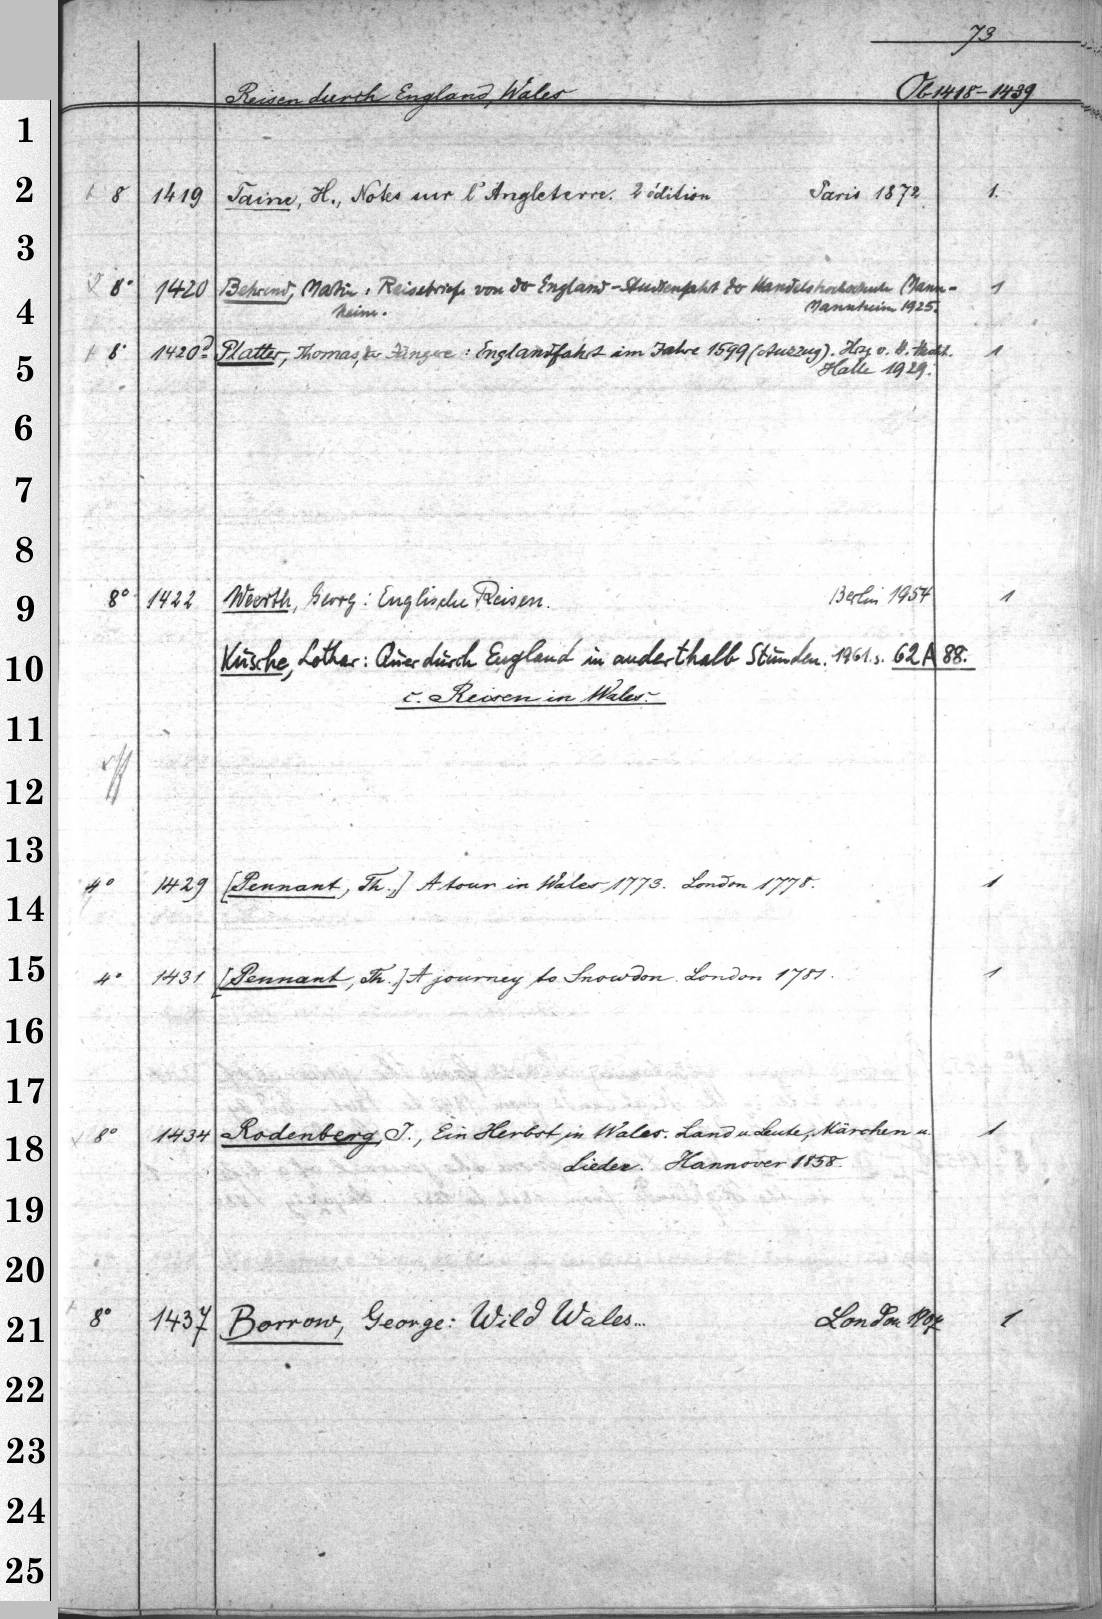 73
Reisen durch England, Wales Ob 1418-1439
1
2 8 1419 Taine, H., Notes sur l'Angleterre. 2 édition Paris 1872 1.
3
8° 1420 Behrend, Martin: Reisebriefe von der England-Studienfahrt der Handelshochschule Mann- 1
4 heim. Mannheim 1925.
8° 1420a Platter, Thomas, der Jüngere: Englandfahrt im Jahre 1599 (Auszug). Hrsg. v. H. Hecht. 1
5 Halle 1929.
6
7
8
9 8° 1422 Weerth, Georg: Englische Reisen. Berlin 1954 1
10 Kusche, Lothar: Quer durch England in anderthalb Stunden. 1961. s. 62 A 88.
c. Reisen in Wales.
11
12
13
4° 1429 [Pennant, Th.,] A tour in Wales 1773. London 1778. 1
14
15 4° 1431 [Pennant, Th.,] A journey to Snowdon. London 1781. 1
16
17
18 8° 1434 Rodenberg, J., Ein Herbst in Wales. Land u. Leute, Märchen u. 1
Lieder. Hannover 1858.
19
20
21 8° 1437 Borrow, George: Wild Wales... London 1907 1
22
23
24
25